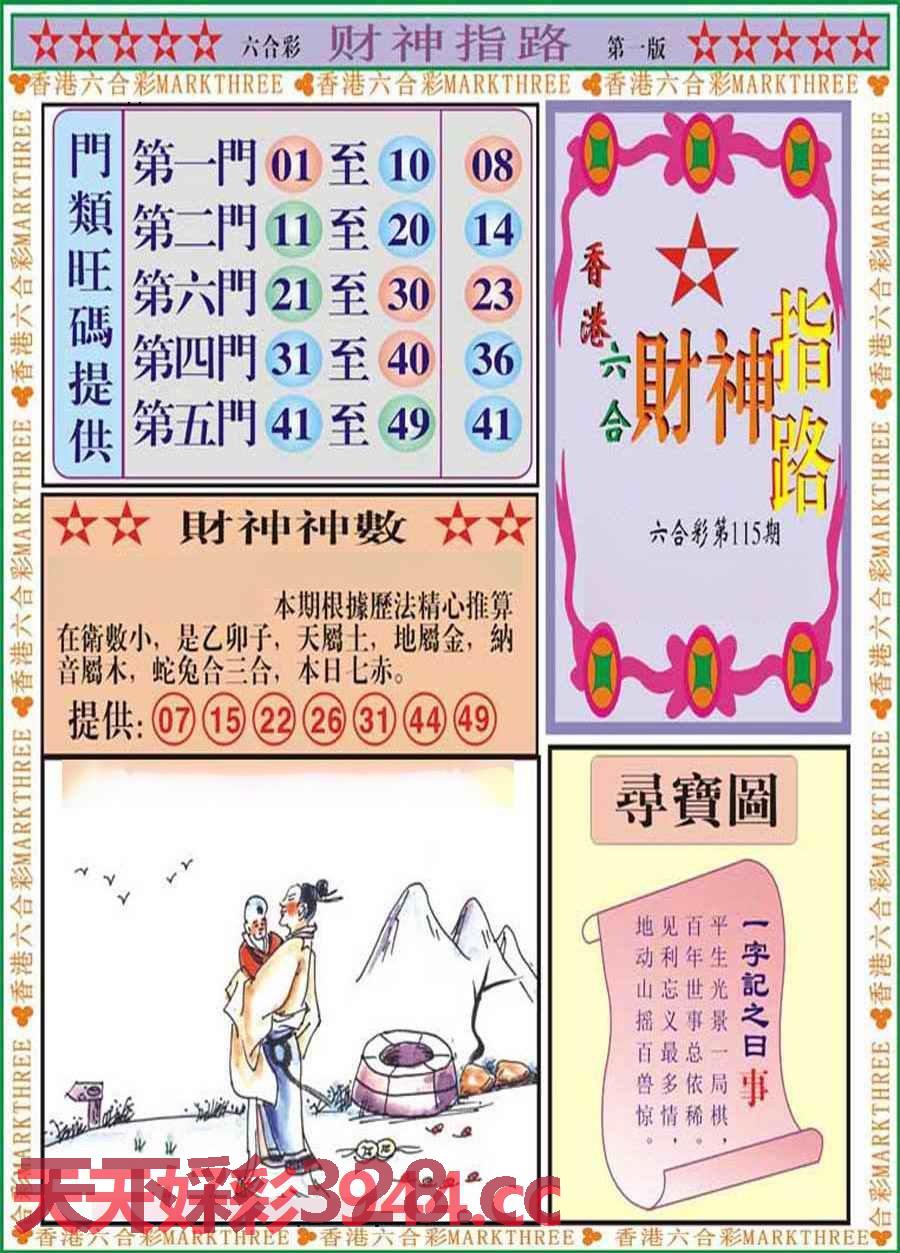 六合彩 财神指路 第一版
香港六合彩MARKTHREE 香港六合彩MARKTHREE 香港六合彩MARKTHREE
門類旺碼提供
第一門 01 至 10 08
第二門 11 至 20 14
第六門 21 至 30 23
第四門 31 至 40 36
第五門 41 至 49 41
香港六合
財神指路
六合彩第115期
財神神數
本期根據歷法精心推算
在衛數小，是乙卯子，天屬土，地屬金，納
音屬木，蛇兔合三合，本日七赤。
提供: 07 15 22 26 31 44 49
尋寶圖
一字記之曰事
平生光景一局棋，
百年世事总依稀。
见利忘义最多情，
地动山摇百兽惊。
香港六合彩MARKTHREE 香港六合彩MARKTHREE 香港六合彩MARKTHREE